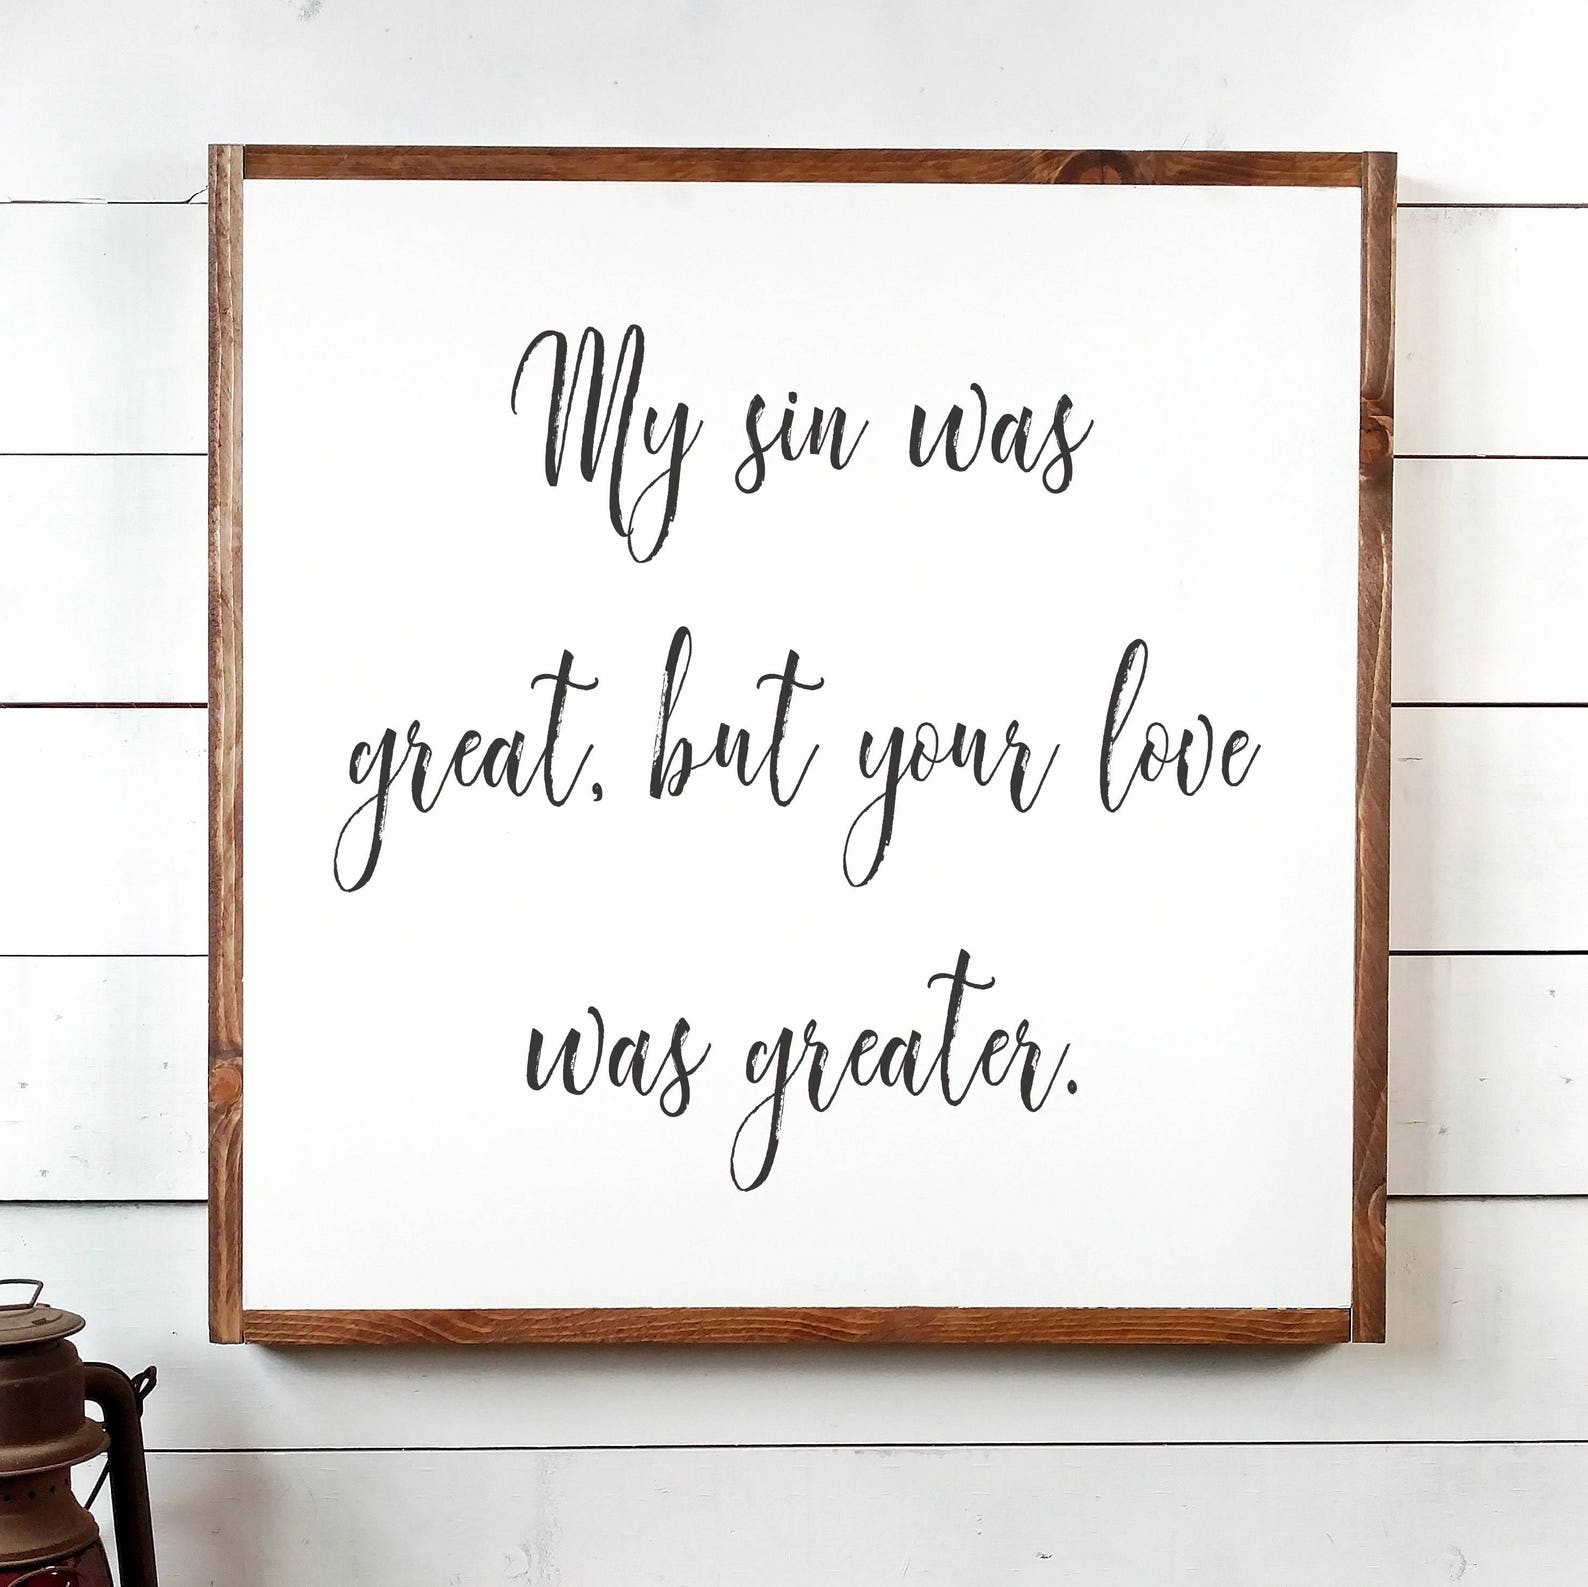 My sin was
great, but your love
was greater.